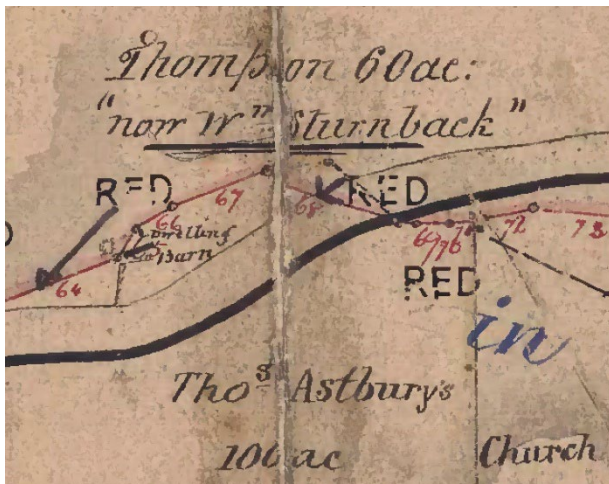 Thompson 60ac:
"now Wm Sturnback"
RED
RED
67
66
68
Dwelling
Barn
64
69
70
72
73
RED
in
Thos Astbury's
100ac
Church